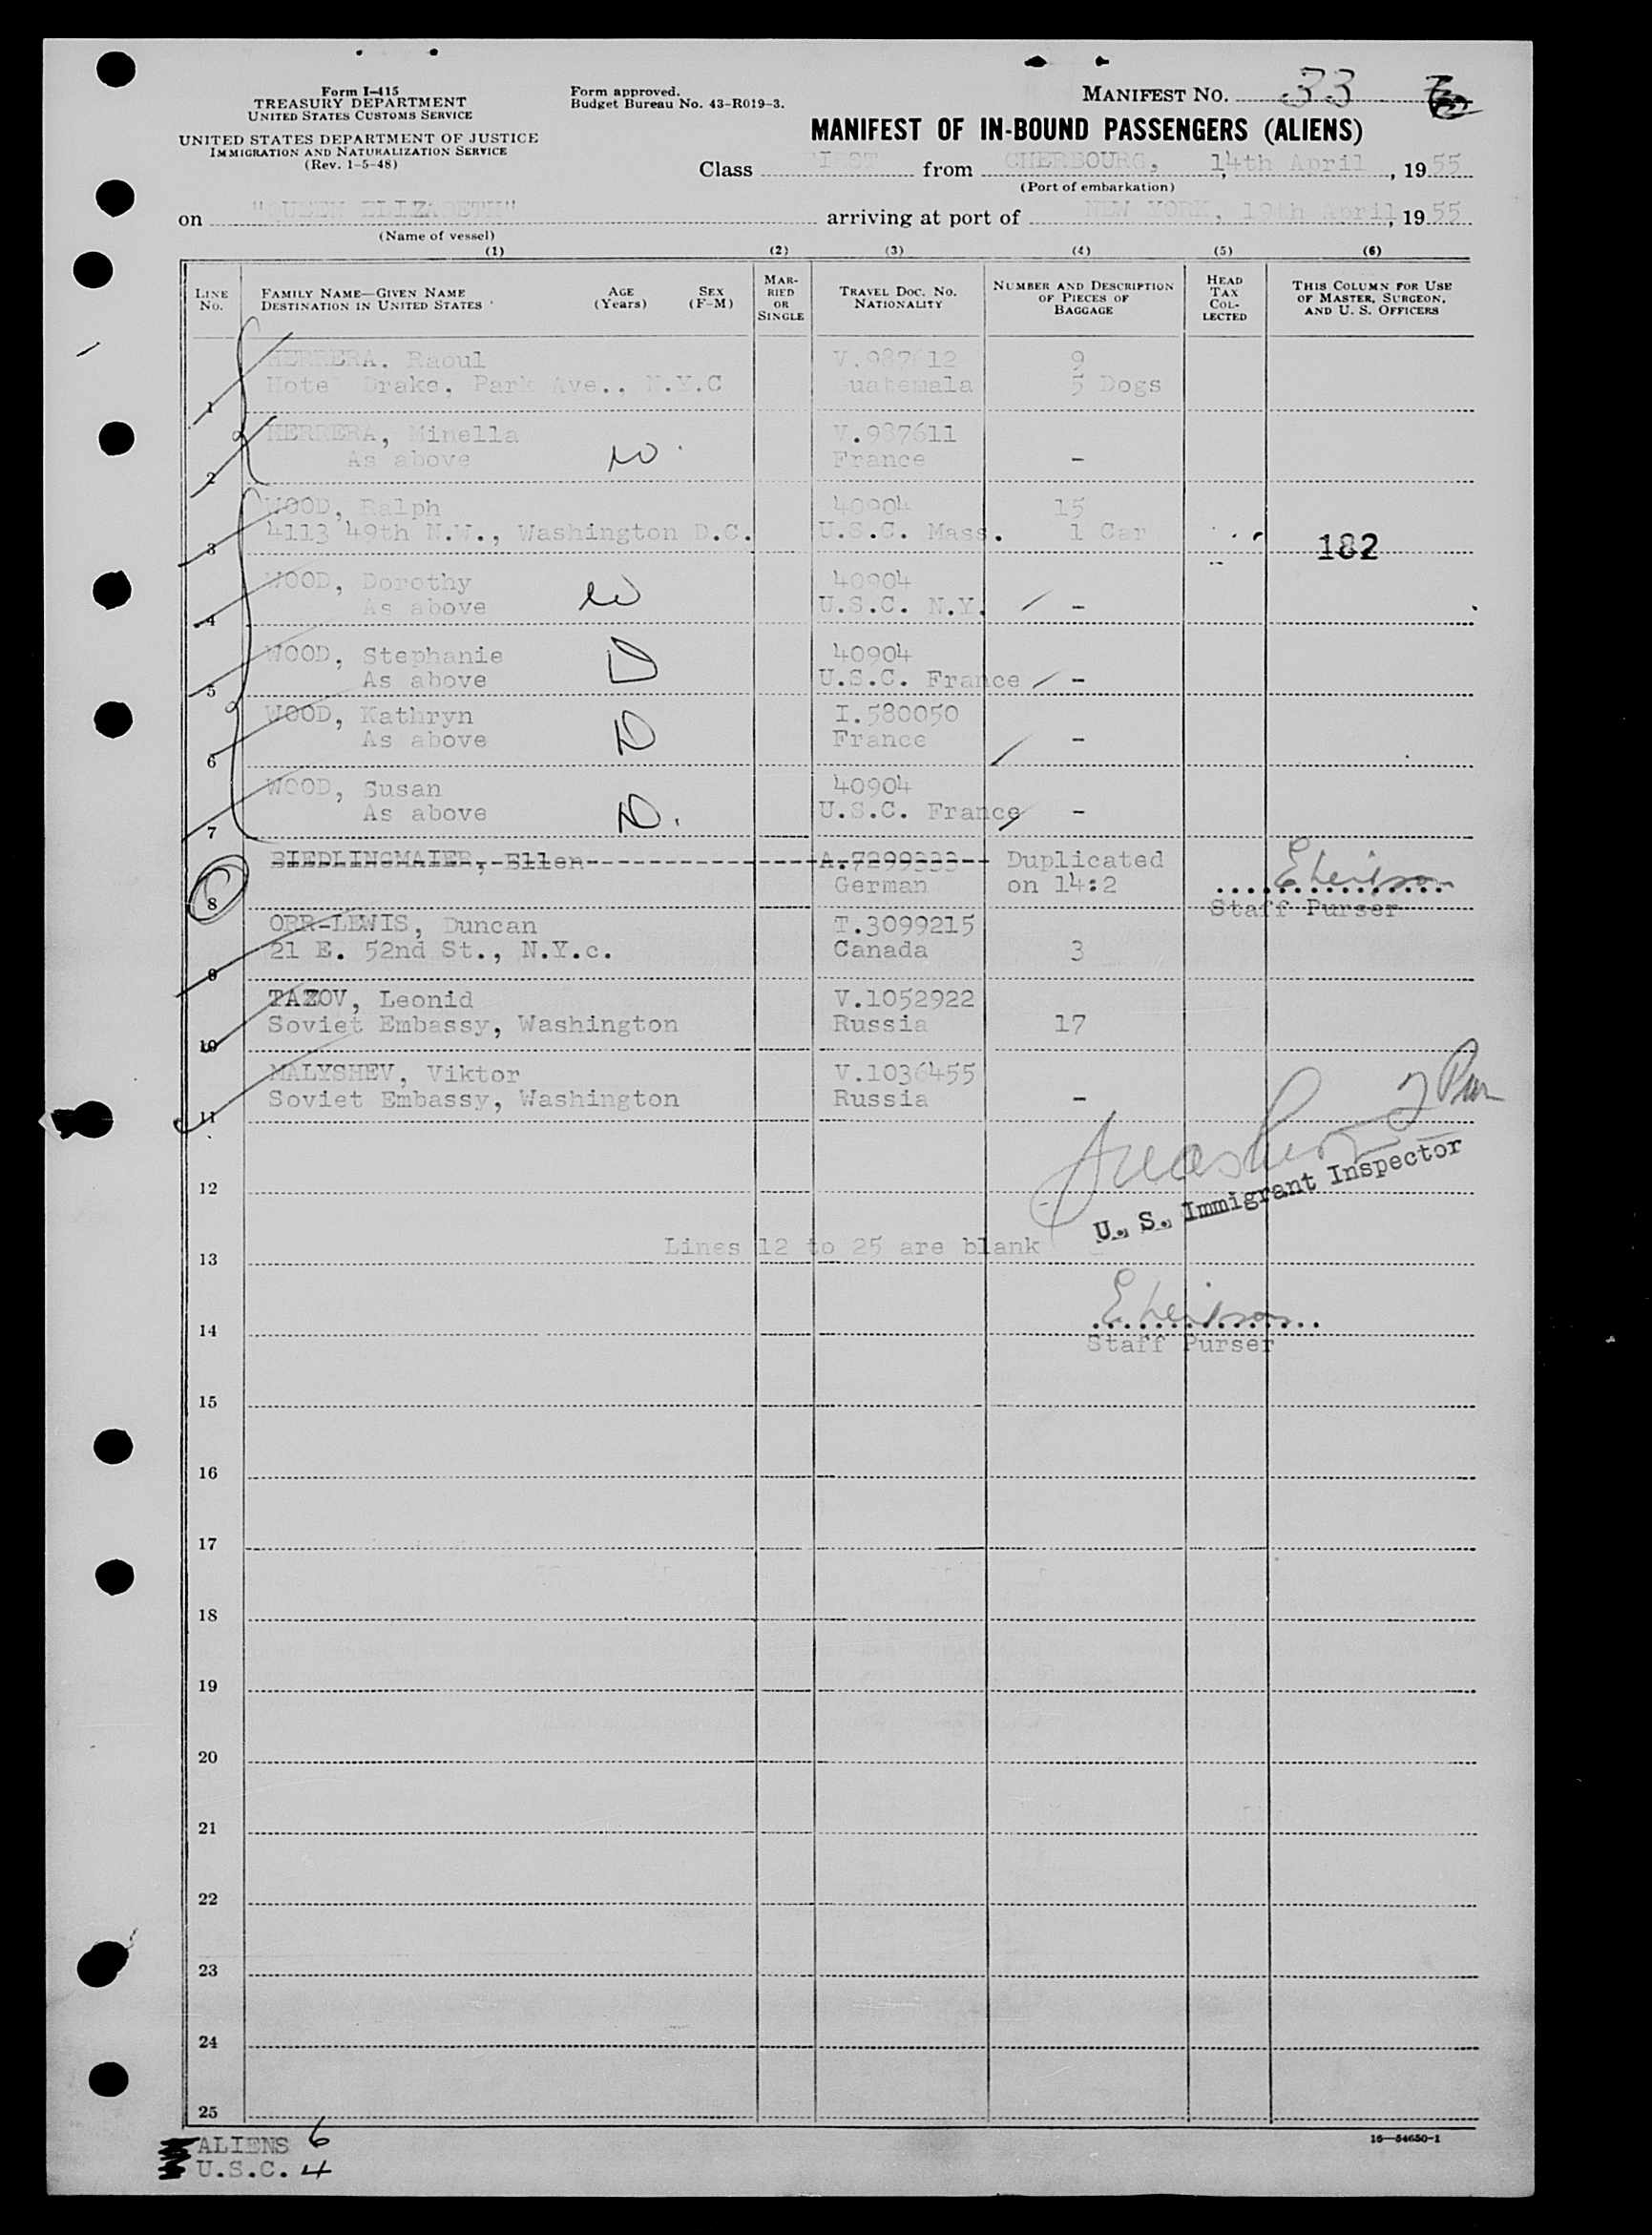 Form I-415
TREASURY DEPARTMENT
UNITED STATES CUSTOMS SERVICE
UNITED STATES DEPARTMENT OF JUSTICE
IMMIGRATION AND NATURALIZATION SERVICE
(Rev. 1-5-48)
Form approved.
Budget Bureau No. 43-R019-3.
MANIFEST NO. 33
MANIFEST OF IN-BOUND PASSENGERS (ALIENS)
Class from CHERBOURG, 14th April, 1955
(Port of embarkation)
on "QUEEN ELIZABETH" arriving at port of NEW YORK, 19th April, 1955
(Name of vessel)
(1) (2) (3) (4) (5) (6)
LINE NO.
FAMILY NAME—GIVEN NAME
DESTINATION IN UNITED STATES
AGE (Years)
SEX (F-M)
MAR-RIED OR SINGLE
TRAVEL DOC. NO. NATIONALITY
NUMBER AND DESCRIPTION OF PIECES OF BAGGAGE
HEAD TAX COL-LECTED
THIS COLUMN FOR USE OF MASTER, SURGEON, AND U. S. OFFICERS
HERRERA. Raoul V.987612 9
1 Hotel Drake, Park Ave., N.Y.C uatemala 5 Dogs
HERRERA, Minella V.987611
2 As above W. France -
WOOD, Ralph 40904 15
3 4113 49th N.W., Washington D.C. U.S.C. Mass. 1 Car 182
WOOD, Dorothy 40904
4 As above W U.S.C. N.Y. -
WOOD, Stephanie 40904
5 As above D U.S.C. France -
WOOD, Kathryn I.580050
6 As above D France -
WOOD, Susan 40904
7 As above D. U.S.C. France -
BIEDLINGMAIER, Ellen A.7299333 Duplicated
8 German on 14:2
Staff Purser
ORR-LEWIS, Duncan T.3099215
9 21 E. 52nd St., N.Y.c. Canada 3
TAZOV, Leonid V.1052922
10 Soviet Embassy, Washington Russia 17
MALYSHEV, Viktor V.1036455
11 Soviet Embassy, Washington Russia -
U. S. Immigrant Inspector
12
Lines 12 to 25 are blank
13
14
Staff Purser
15
16
17
18
19
20
21
22
23
24
25
ALIENS 6
U.S.C. 4
16—54650-1